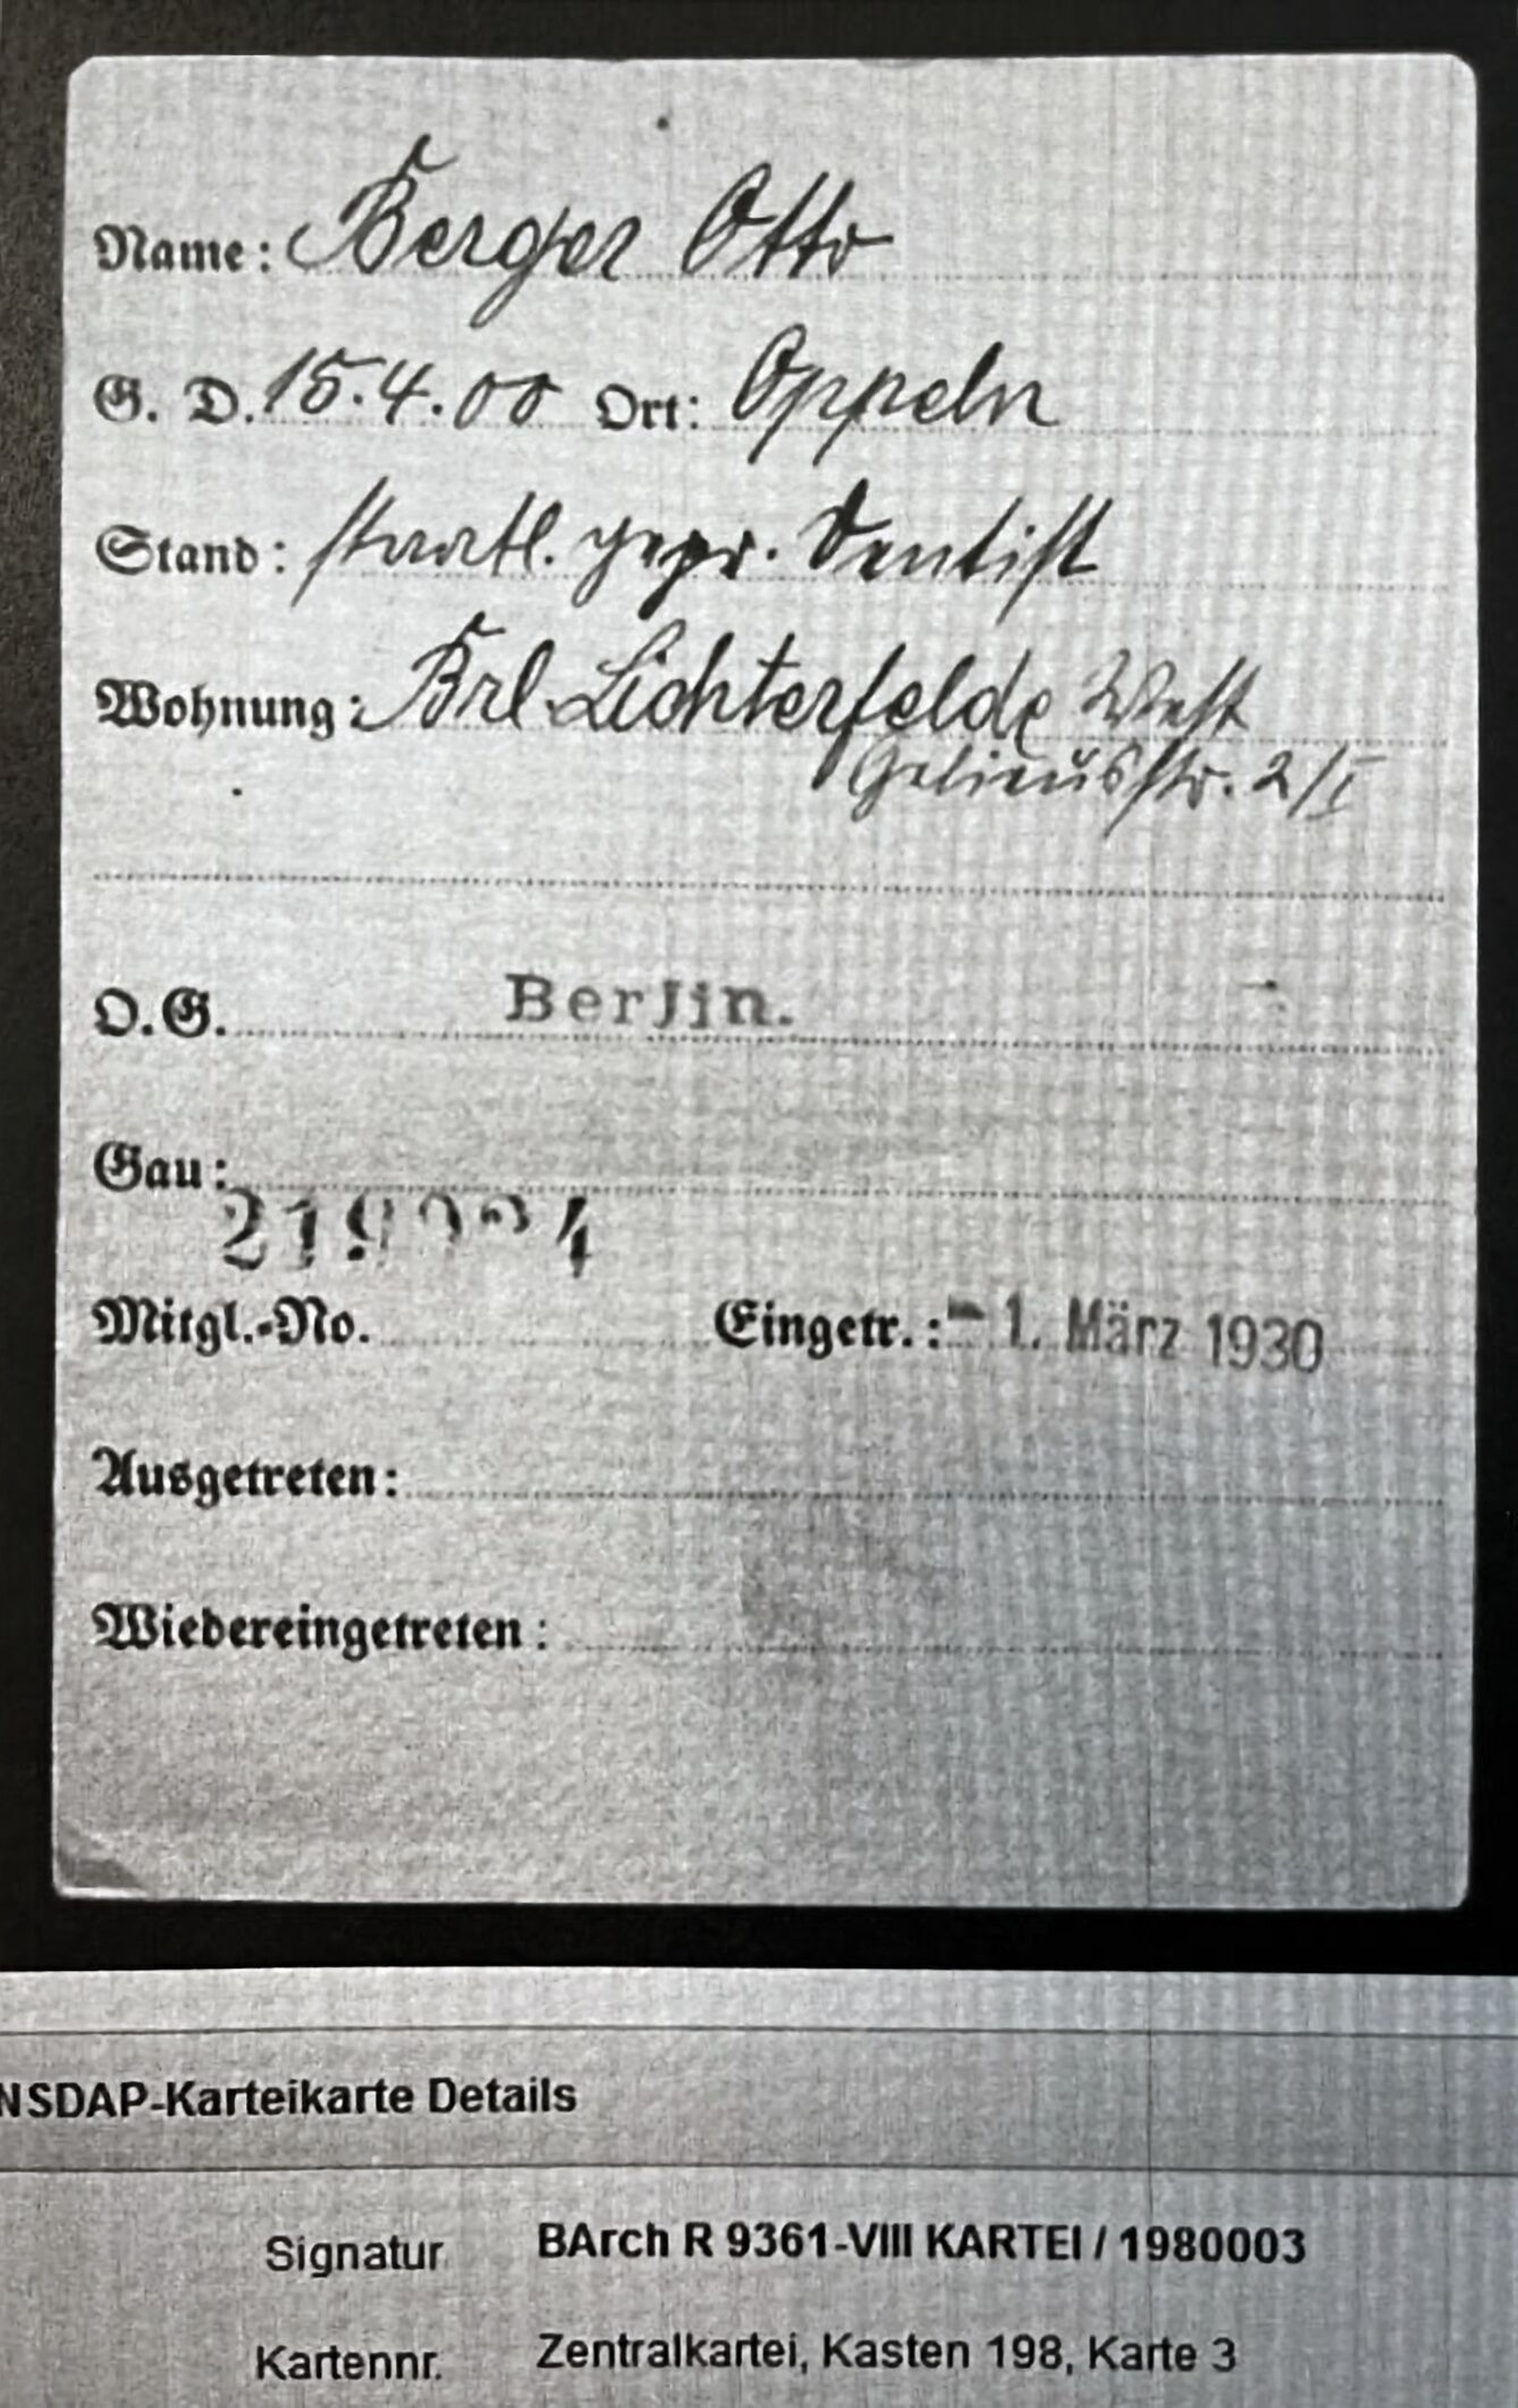 Name: Berger Otto
G. D. 15.4.00 Ort: Oppeln
Stand: staatl. gepr. Dentist
Wohnung: Brl. Lichterfelde West
str. 2/I
O.G. Berlin.
Gau:
Mitgl.-No. Eingetr.: - 1. März 1930
Ausgetreten:
Wiedereingetreten:
NSDAP-Karteikarte Details
Signatur BArch R 9361-VIII KARTEI / 1980003
Kartennr. Zentralkartei, Kasten 198, Karte 3